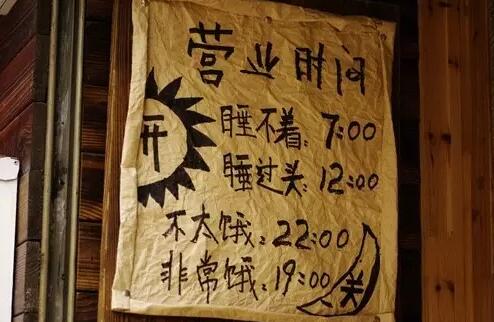 营业时间
开
睡不着：7:00
睡过头：12:00
不太饿：22:00
非常饿：19:00
关